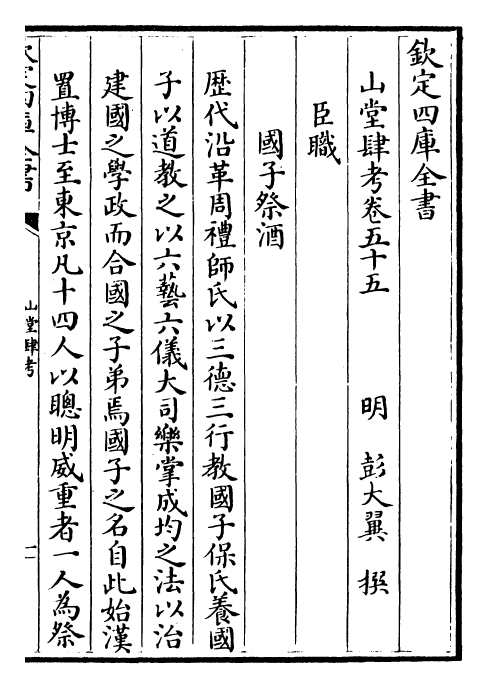 欽定四庫全書
山堂肆考卷五十五
明 彭大翼 撰
臣職
國子祭酒
歴代沿革周禮師氏以三德三行教國子保氏養國
子以道教之以六藝六儀大司樂掌成均之法以治
建國之學政而合國之子弟焉國子之名自此始漢
置博士至東京凡十四人以聰明威重者一人為祭
欽定四庫全書
山堂肆考
一